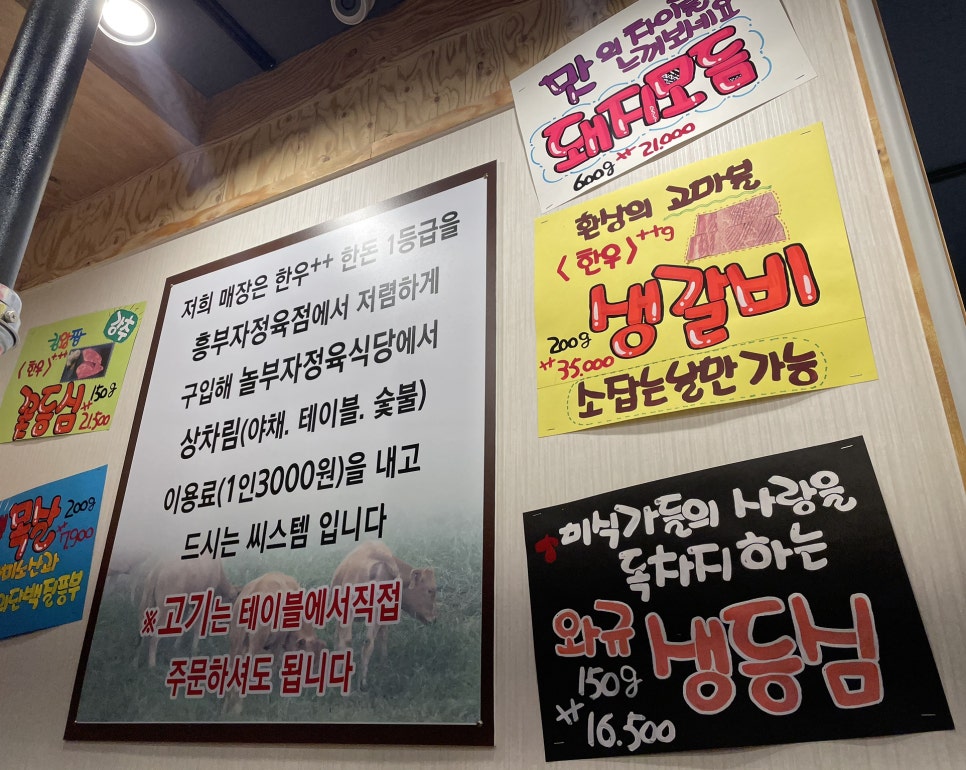 저희 매장은 한우++ 한돈 1등급을
흥부자정육점에서 저렴하게
구입해 놀부자정육식당에서
상차림(야채. 테이블. 숯불)
이용료(1인3000원)을 내고
드시는 씨스템 입니다
※고기는 테이블에서직접
주문하셔도 됩니다
맛의 다이돌
느껴봐세요
돼지모듬
600g ₩21.000
환상의 고마블
<한우>++g
생갈비
200g
₩35.000
소답는날만 가능
미식가들의 사랑을
독차지하는
와규
냉등심
150g
₩16.500
강추
<한우>++
꽃등심 150g
₩21.500
목살 200g
₩7.900
미노산과
단백질풍부